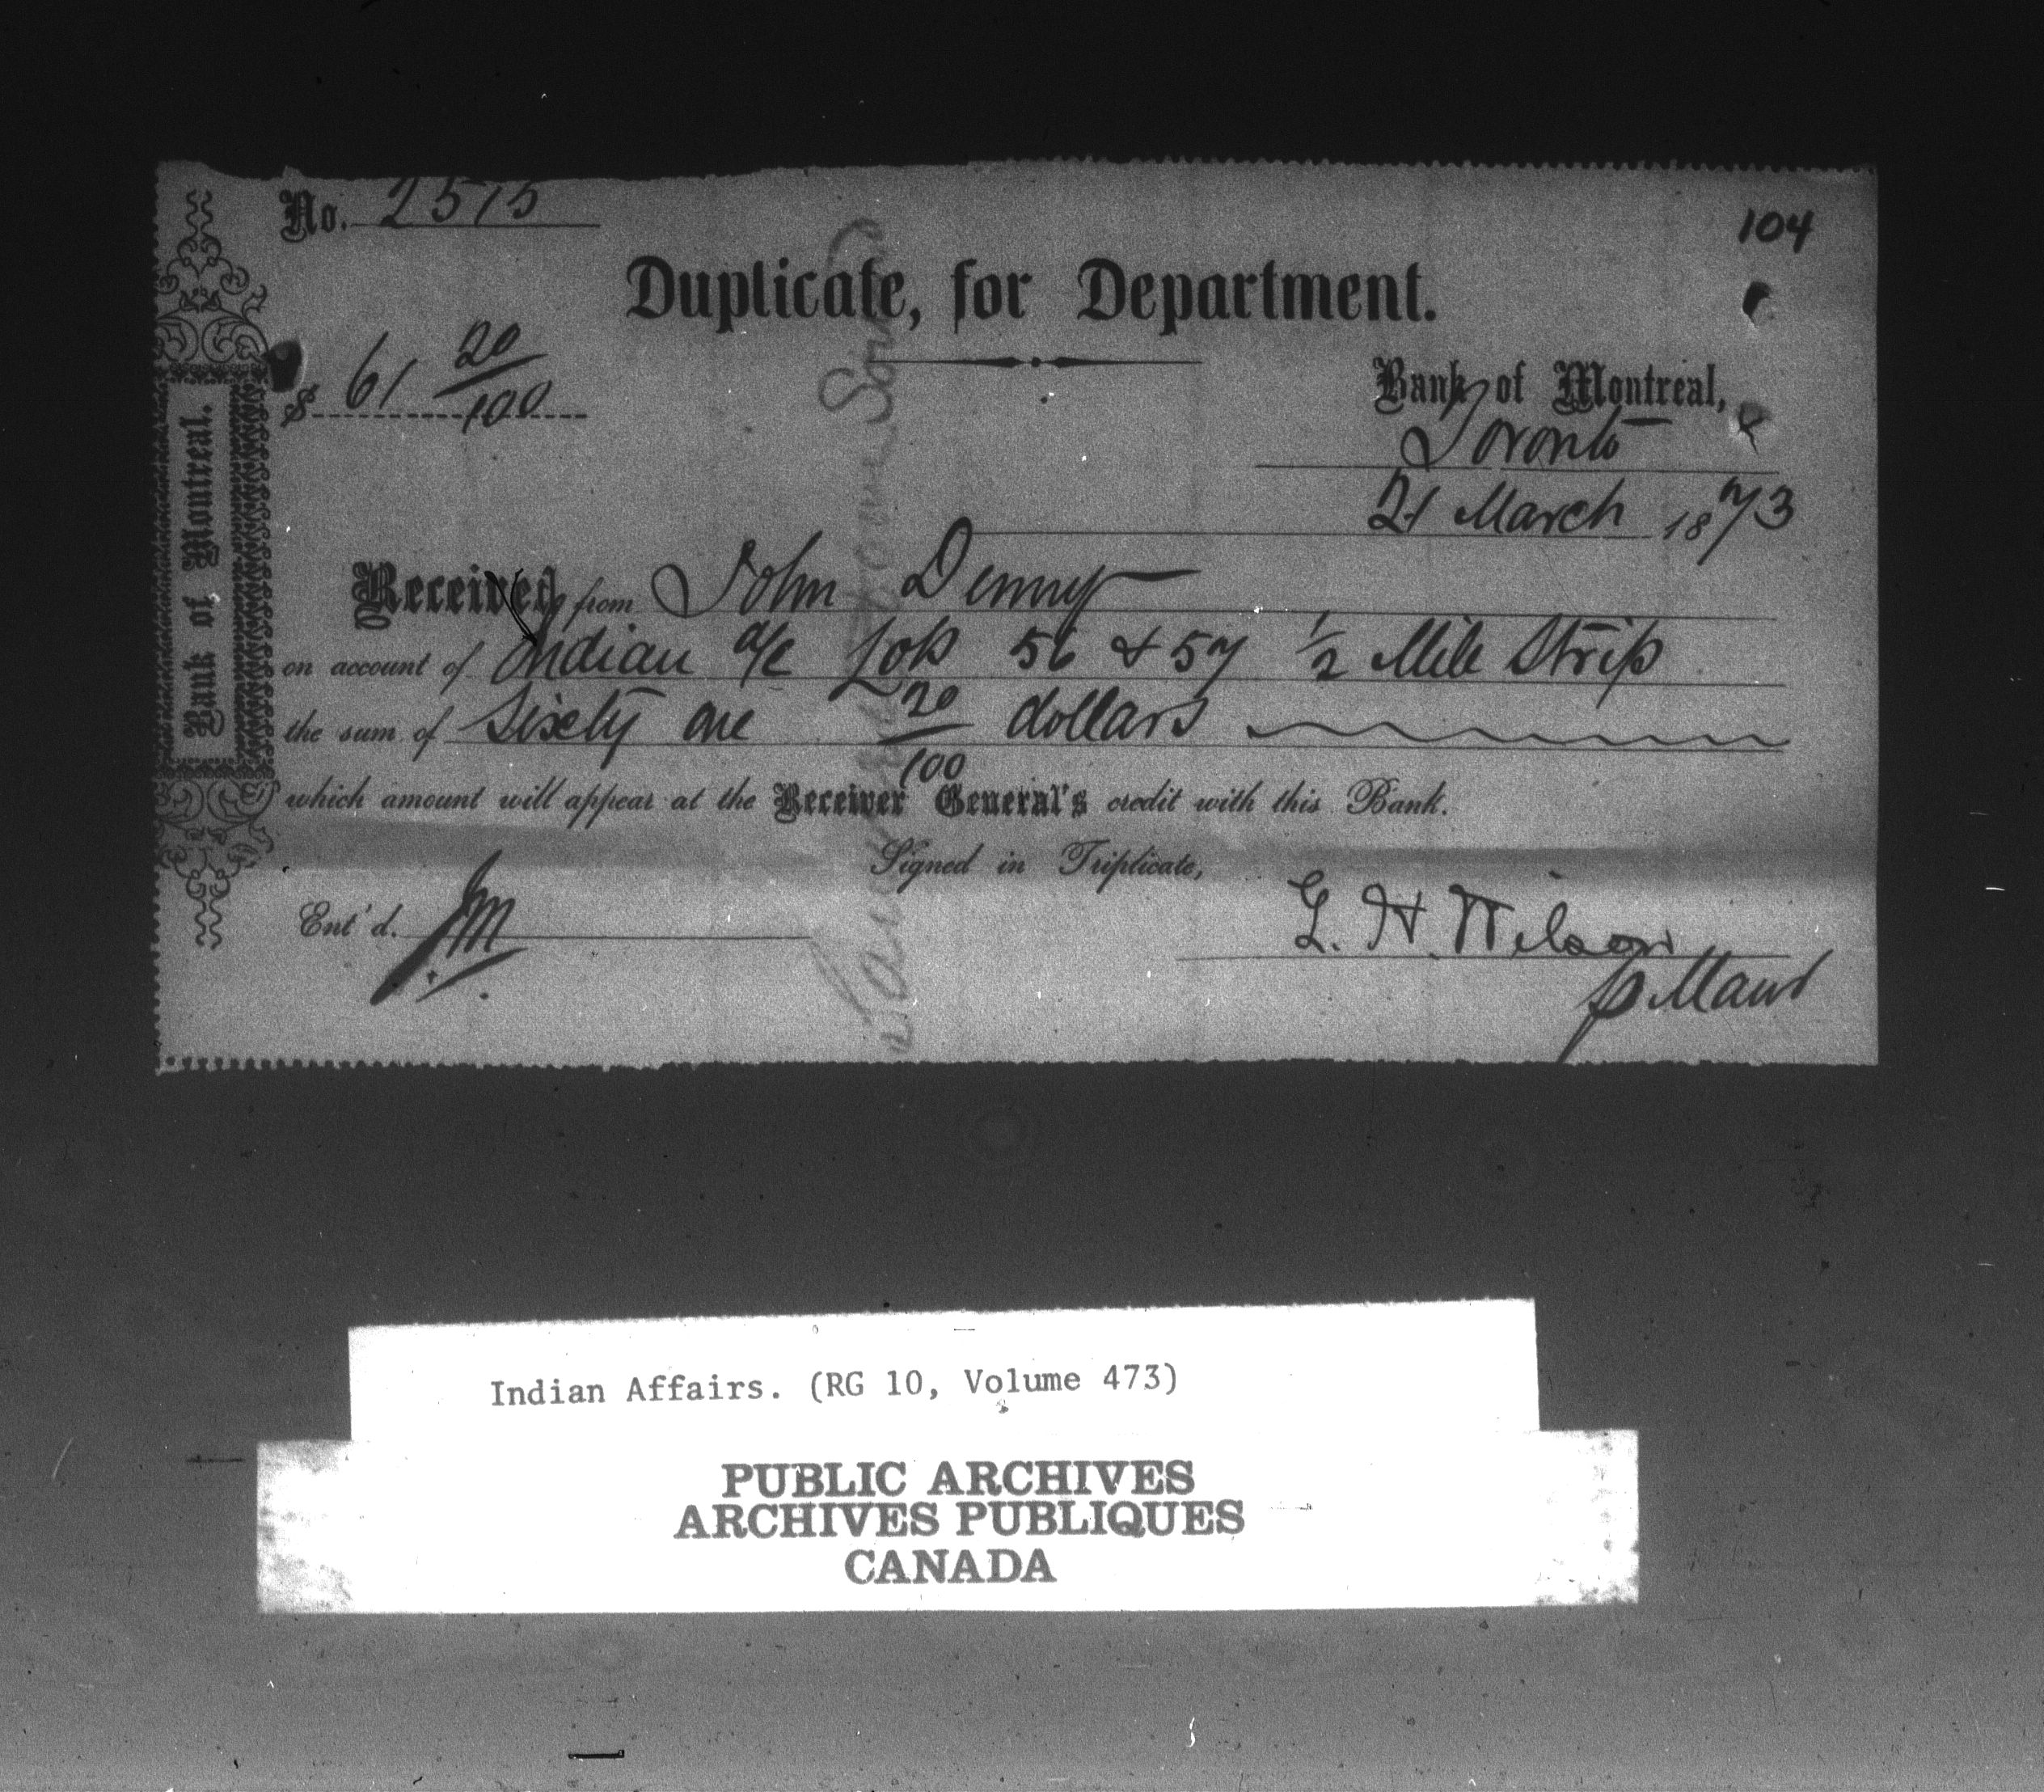 No. 2515
104
Duplicate, for Department.
$ 61 20/100
Bank of Montreal,
Toronto
21 March 1873
Received from John Denny
on account of Indian a/c Lots 56 & 57 1/2 Mile Strip
the sum of Sixty one 20/100 dollars
which amount will appear at the Receiver General's credit with this Bank.
Signed in Triplicate,
Ent'd. JM
G. H. Wilson
p Man
Bank of Montreal.
Sound
Indian Affairs. (RG 10, Volume 473)
PUBLIC ARCHIVES
ARCHIVES PUBLIQUES
CANADA